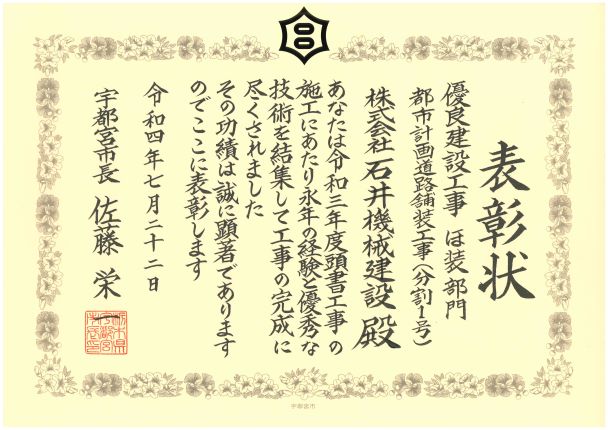 表彰状
優良建設工事 ほ装部門
都市計画道路舗装工事(分割1号)
株式会社 石井機械建設 殿
あなたは令和三年度頭書工事の
施工にあたり永年の経験と優秀な
技術を結集して工事の完成に
尽くされました
その功績は誠に顕著であります
のでここに表彰します
令和四年七月二十二日
宇都宮市長 佐藤 栄一
宇都宮市